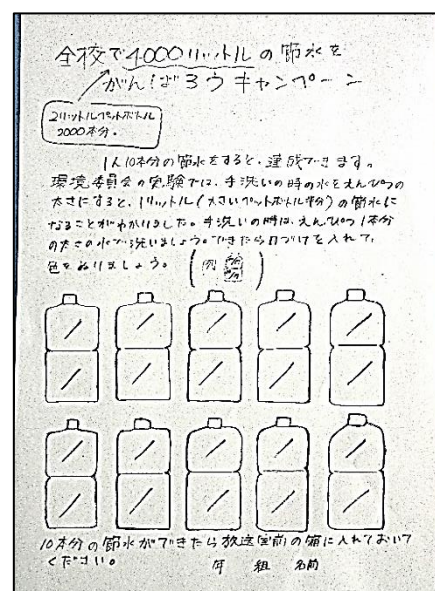 全校で4000リットルの節水を
がんばろうキャンペーン
2リットルペットボトル
2000本分。
1人10本分の節水をすると、達成できます。
環境委員会の実験では、手洗いの時の水をえんぴつの
太さにすると、1リットル(大きいペットボトル半分)の節水に
なることがわかりました。手洗いの時は、えんぴつ1本分
の太さの水で洗いましょう。できたら日づけを入れて、
色をぬりましょう。(例)
10本分の節水ができたら放送室前の箱に入れておいて
ください。 年 組 名前